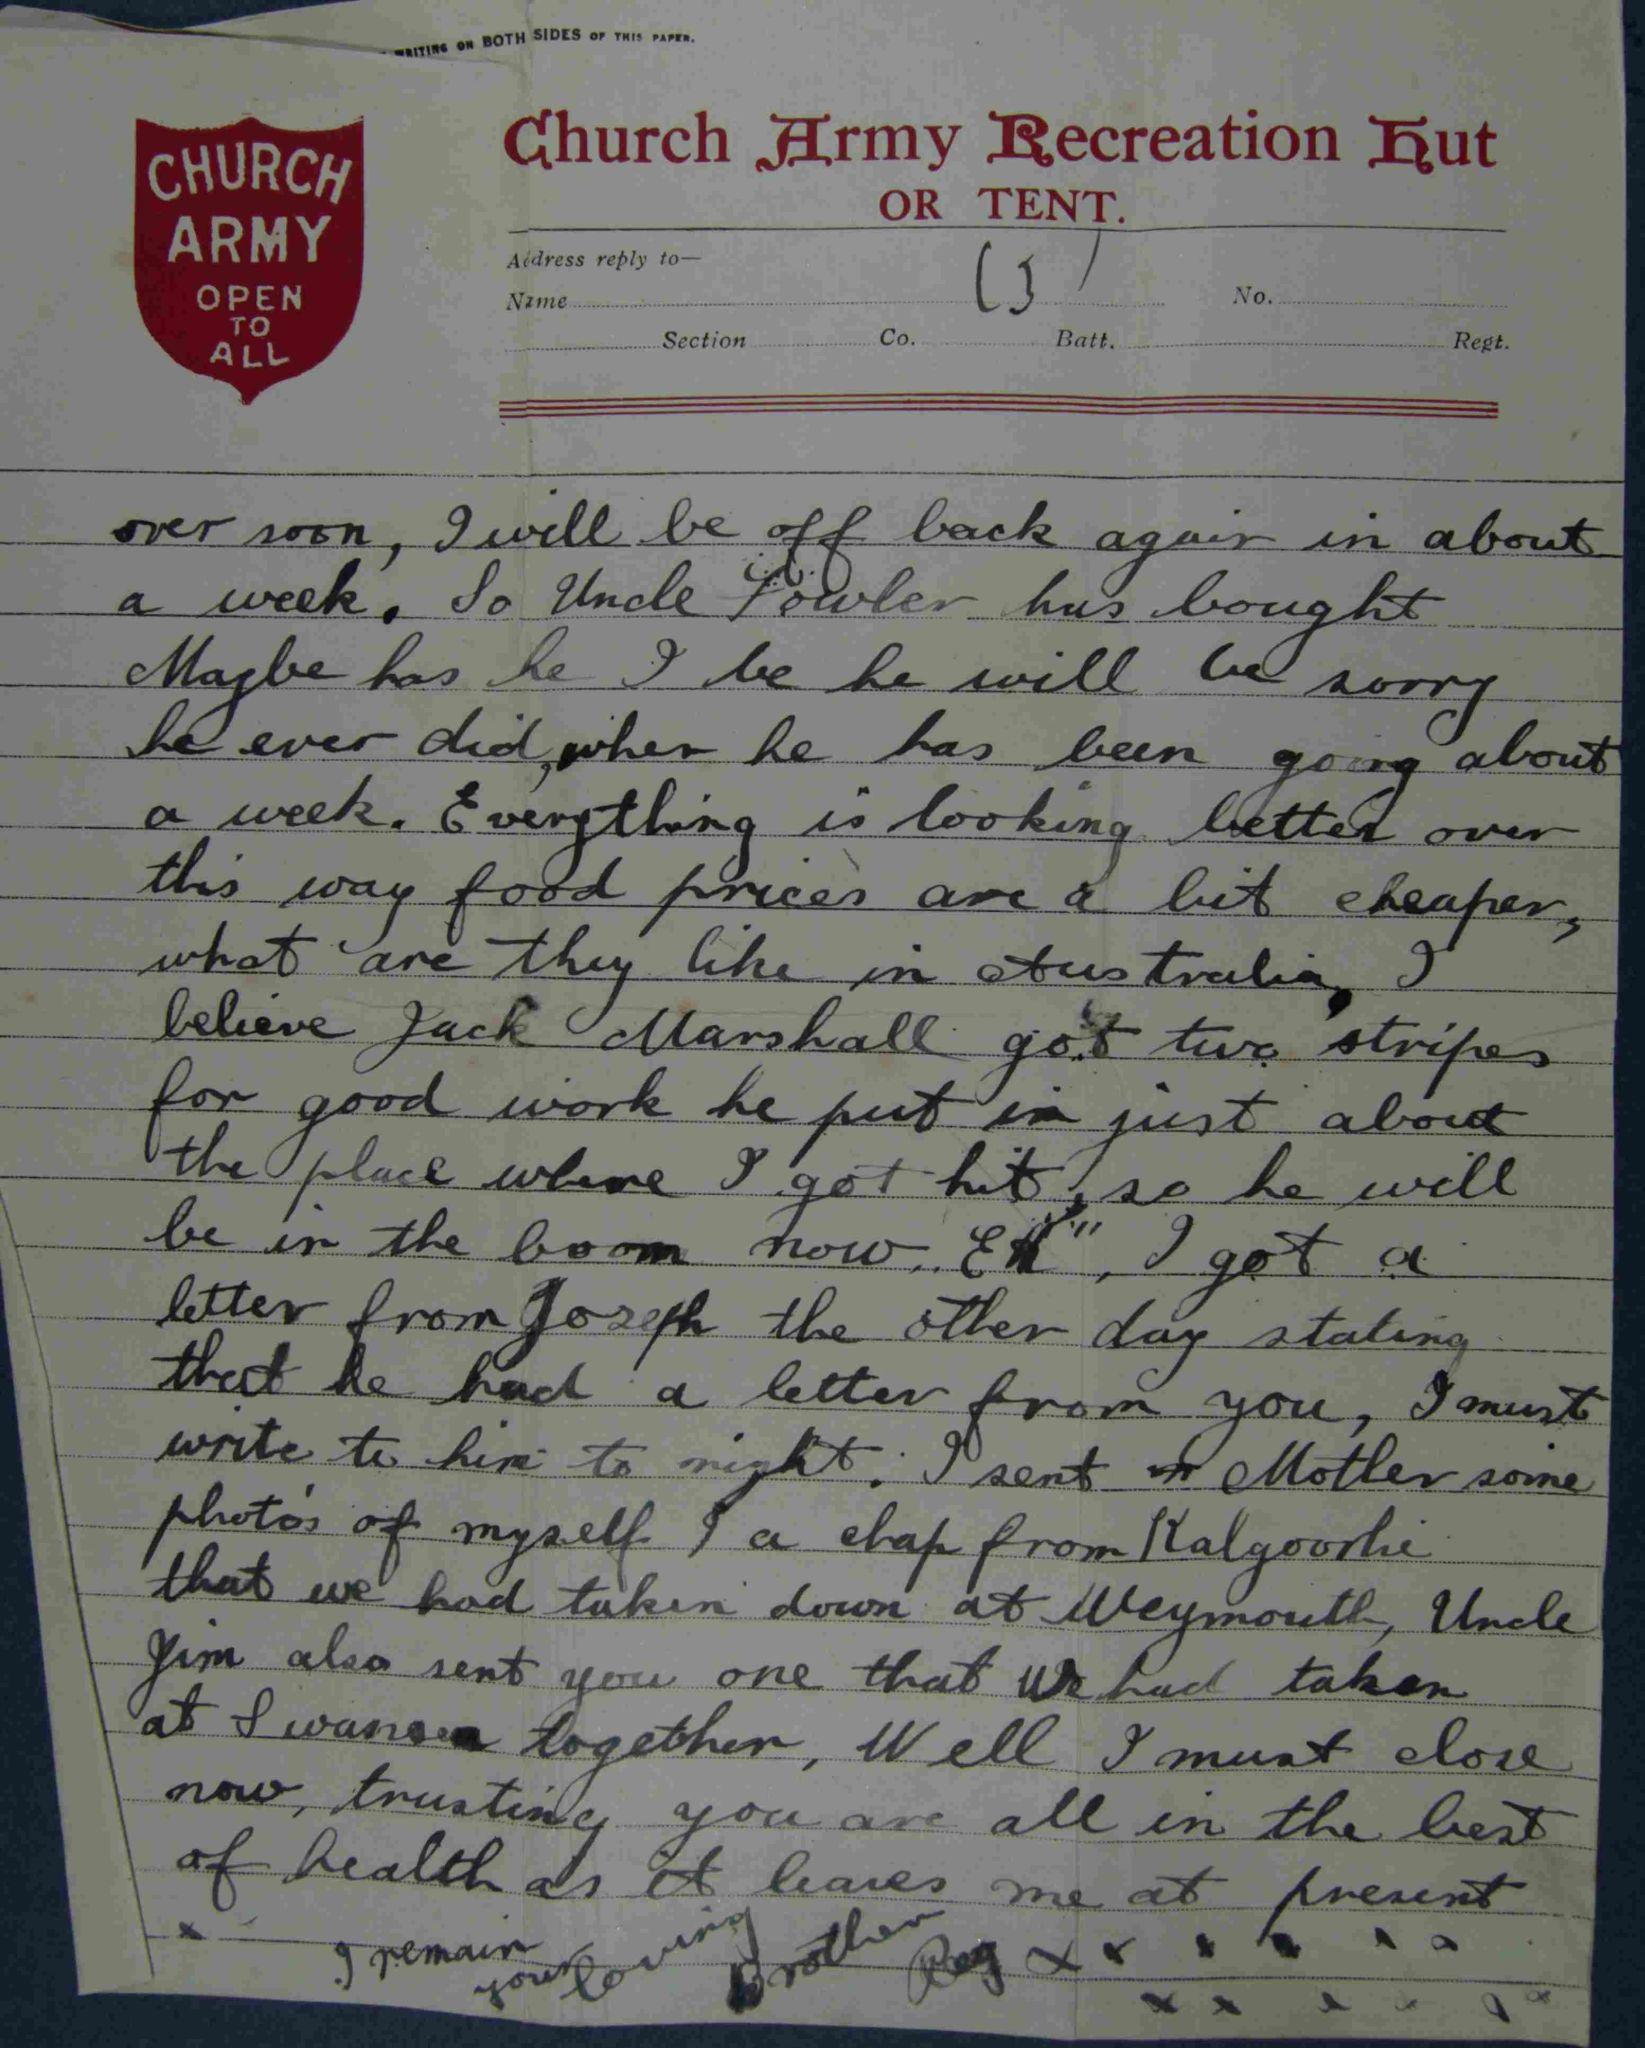 WRITING ON BOTH SIDES OF THIS PAPER.
CHURCH
ARMY
OPEN
TO
ALL
Church Army Recreation Hut
OR TENT.
Address reply to—
(3)
Name No.
Section Co. Batt. Regt.
over soon, I will be off back again in about
a week. So Uncle Fowler has bought
Magbe has he I be he will be sorry
he ever did, when he has been going about
a week. Everything is looking better over
this way food prices are a bit cheaper,
what are they like in Australia, I
believe Jack Marshall got two stripes
for good work he put in just about
the place where I got hit, so he will
be in the boom now, "Eh", I got a
letter from Joseph the other day stating
that he had a letter from you, I must
write to him to night. I sent Mother some
photo's of myself & a chap from Kalgoorlie
that we had taken down at Weymouth, Uncle
Jim also sent you one that we had taken
at Swansea together, Well I must close
now, trusting you are all in the best
of health as it leaves me at present
x I remain your loving brother Reg x x x x x x
x x x x x x